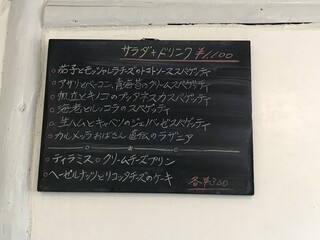 サラダ+ドリンク ¥1,100
○茄子とモッツァレラチーズのトマトソーススパゲッティ
○アサリとベーコン、青海苔のクリームスパゲッティ
○帆立とキノコのプッタネスカスパゲッティ
○海老とルッコラのスパゲッティ
○生ハムとキャベツのジェノベーゼスパゲッティ
○カルメッラおばさん直伝のラザニア
○ティラミス ○クリームチーズプリン
○ヘーゼルナッツとリコッタチーズのケーキ 各¥300